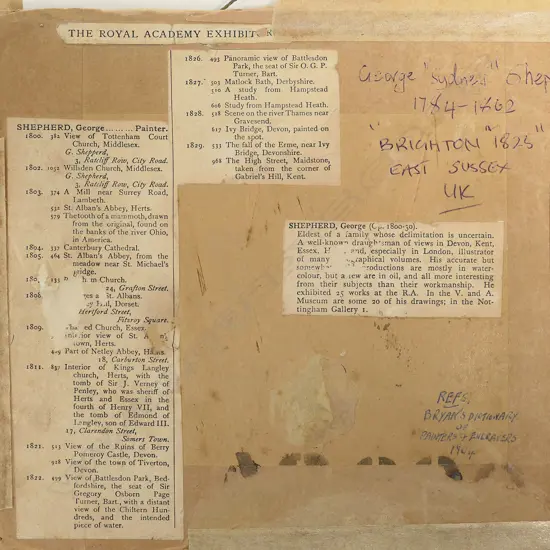 THE ROYAL ACADEMY EXHIBIT
SHEPHERD, George.......... Painter.
1800. 382 View of Tottenham Court
Church, Middlesex.
G. Shepherd,
3, Ratcliff Row, City Road.
1802. 1052 Willsden Church, Middlesex.
G. Shepherd,
3, Ratcliff Row, City Road.
1803. 374 A Mill near Surrey Road,
Lambeth.
532 St. Alban's Abbey, Herts.
579 The tooth of a mammoth, drawn
from the original, found on
the banks of the river Ohio,
in America.
1804. 532 Canterbury Cathedral.
1805. 464 St. Alban's Abbey, from the
meadow near St. Michael's
Bridge.
m Church.
24, Grafton Street.
1808. St. Albans.
Hall, Dorset.
Hertford Street,
Fitzroy Square.
1809. Church, Essex.
view of St.
Town, Herts.
449 Part of Netley Abbey, Hants.
18, Carburton Street.
1811. 837 Interior of Kings Langley
church, Herts, with the
tomb of Sir J. Verney of
Penley, who was sheriff of
Herts and Essex in the
fourth of Henry VII, and
the tomb of Edmond of
Langley, son of Edward III.
17, Clarendon Street,
Somers Town.
1821. 513 View of the Ruins of Berry
Pomeroy Castle, Devon.
928 View of the town of Tiverton,
Devon.
1822. 499 Battlesdon Park, Bed-
fordshire, the seat of Sir
Gregory Osborn Page
Turner, Bart., with a distant
view of the Chiltern Hun-
dreds, and the intended
piece of water.
1826. 493 Panoramic view of Battlesdon
Park, the seat of Sir O. G. P.
Turner, Bart.
1827. 305 Matlock Bath, Derbyshire.
310 A study from Hampstead
Heath.
626 Study from Hampstead Heath.
1828. 528 Scene on the river Thames near
Gravesend.
617 Ivy Bridge, Devon, painted on
the spot.
1829. 533 The fall of the Erme, near Ivy
Bridge, Devonshire.
968 The High Street, Maidstone,
taken from the corner of
Gabriel's Hill, Kent.
George "Sydney" Shep
1784-1862
"BRIGHTON" "1825"
EAST SUSSEX
UK
SHEPHERD, George (Op. 1800-30).
Eldest of a family whose delimitation is uncertain.
A well-known draughtsman of views in Devon, Kent,
Essex, and, especially in London, illustrator
of many graphical volumes. His accurate but
somewhat productions are mostly in water-
colour, but a few are in oil, and all more interesting
from their subjects than their workmanship. He
exhibited 25 works at the R.A. In the V. and A.
Museum are some 20 of his drawings; in the Not-
tingham Gallery 1.
REFS.
BRYAN'S DICTIONARY
OF
PAINTERS & ENGRAVERS
1904